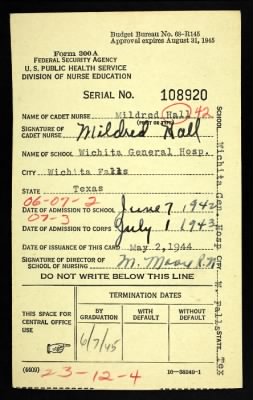 Budget Bureau No. 68-R145
Approval expires August 31, 1945
Form 300A
FEDERAL SECURITY AGENCY
U. S. PUBLIC HEALTH SERVICE
DIVISION OF NURSE EDUCATION
SERIAL NO. 108920
NAME OF CADET NURSE Mildred Hall 42
(PRINT OR TYPE)
SIGNATURE OF CADET NURSE Mildred Hall
NAME OF SCHOOL Wichita General Hosp.
CITY Wichita Falls
STATE Texas
06-07-2
DATE OF ADMISSION TO SCHOOL June 7 1942
07-3
DATE OF ADMISSION TO CORPS July 1 1943
DATE OF ISSUANCE OF THIS CARD May 2, 1944
SIGNATURE OF DIRECTOR OF SCHOOL OF NURSING M. Moore R.N.
DO NOT WRITE BELOW THIS LINE
THIS SPACE FOR CENTRAL OFFICE USE
TERMINATION DATES
BY GRADUATION
WITH DEFAULT
WITHOUT DEFAULT
6/7/45
(4409)
23-12-4
16-38249-1
SCHOOL Wichita Gen. Hosp CITY W. Falls STATE Tex